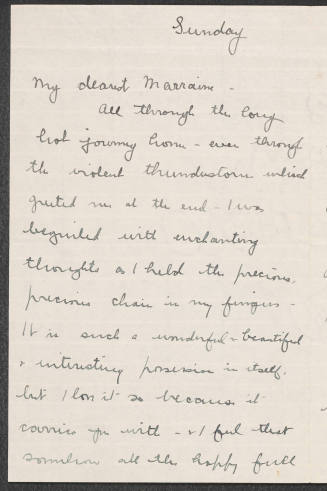 Sunday
My dearest Marraine -
All through the long
hot journey home - even through
the violent thunderstorm which
greeted me at the end - I was
beguiled with enchanting
thoughts as I held the precious,
precious chain in my fingers -
It is such a wonderful & beautiful
& interesting possession in itself,
but I love it so because it
carries you with - & I feel that
somehow all the happy full